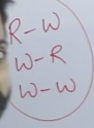 R-W
W-R
W-W